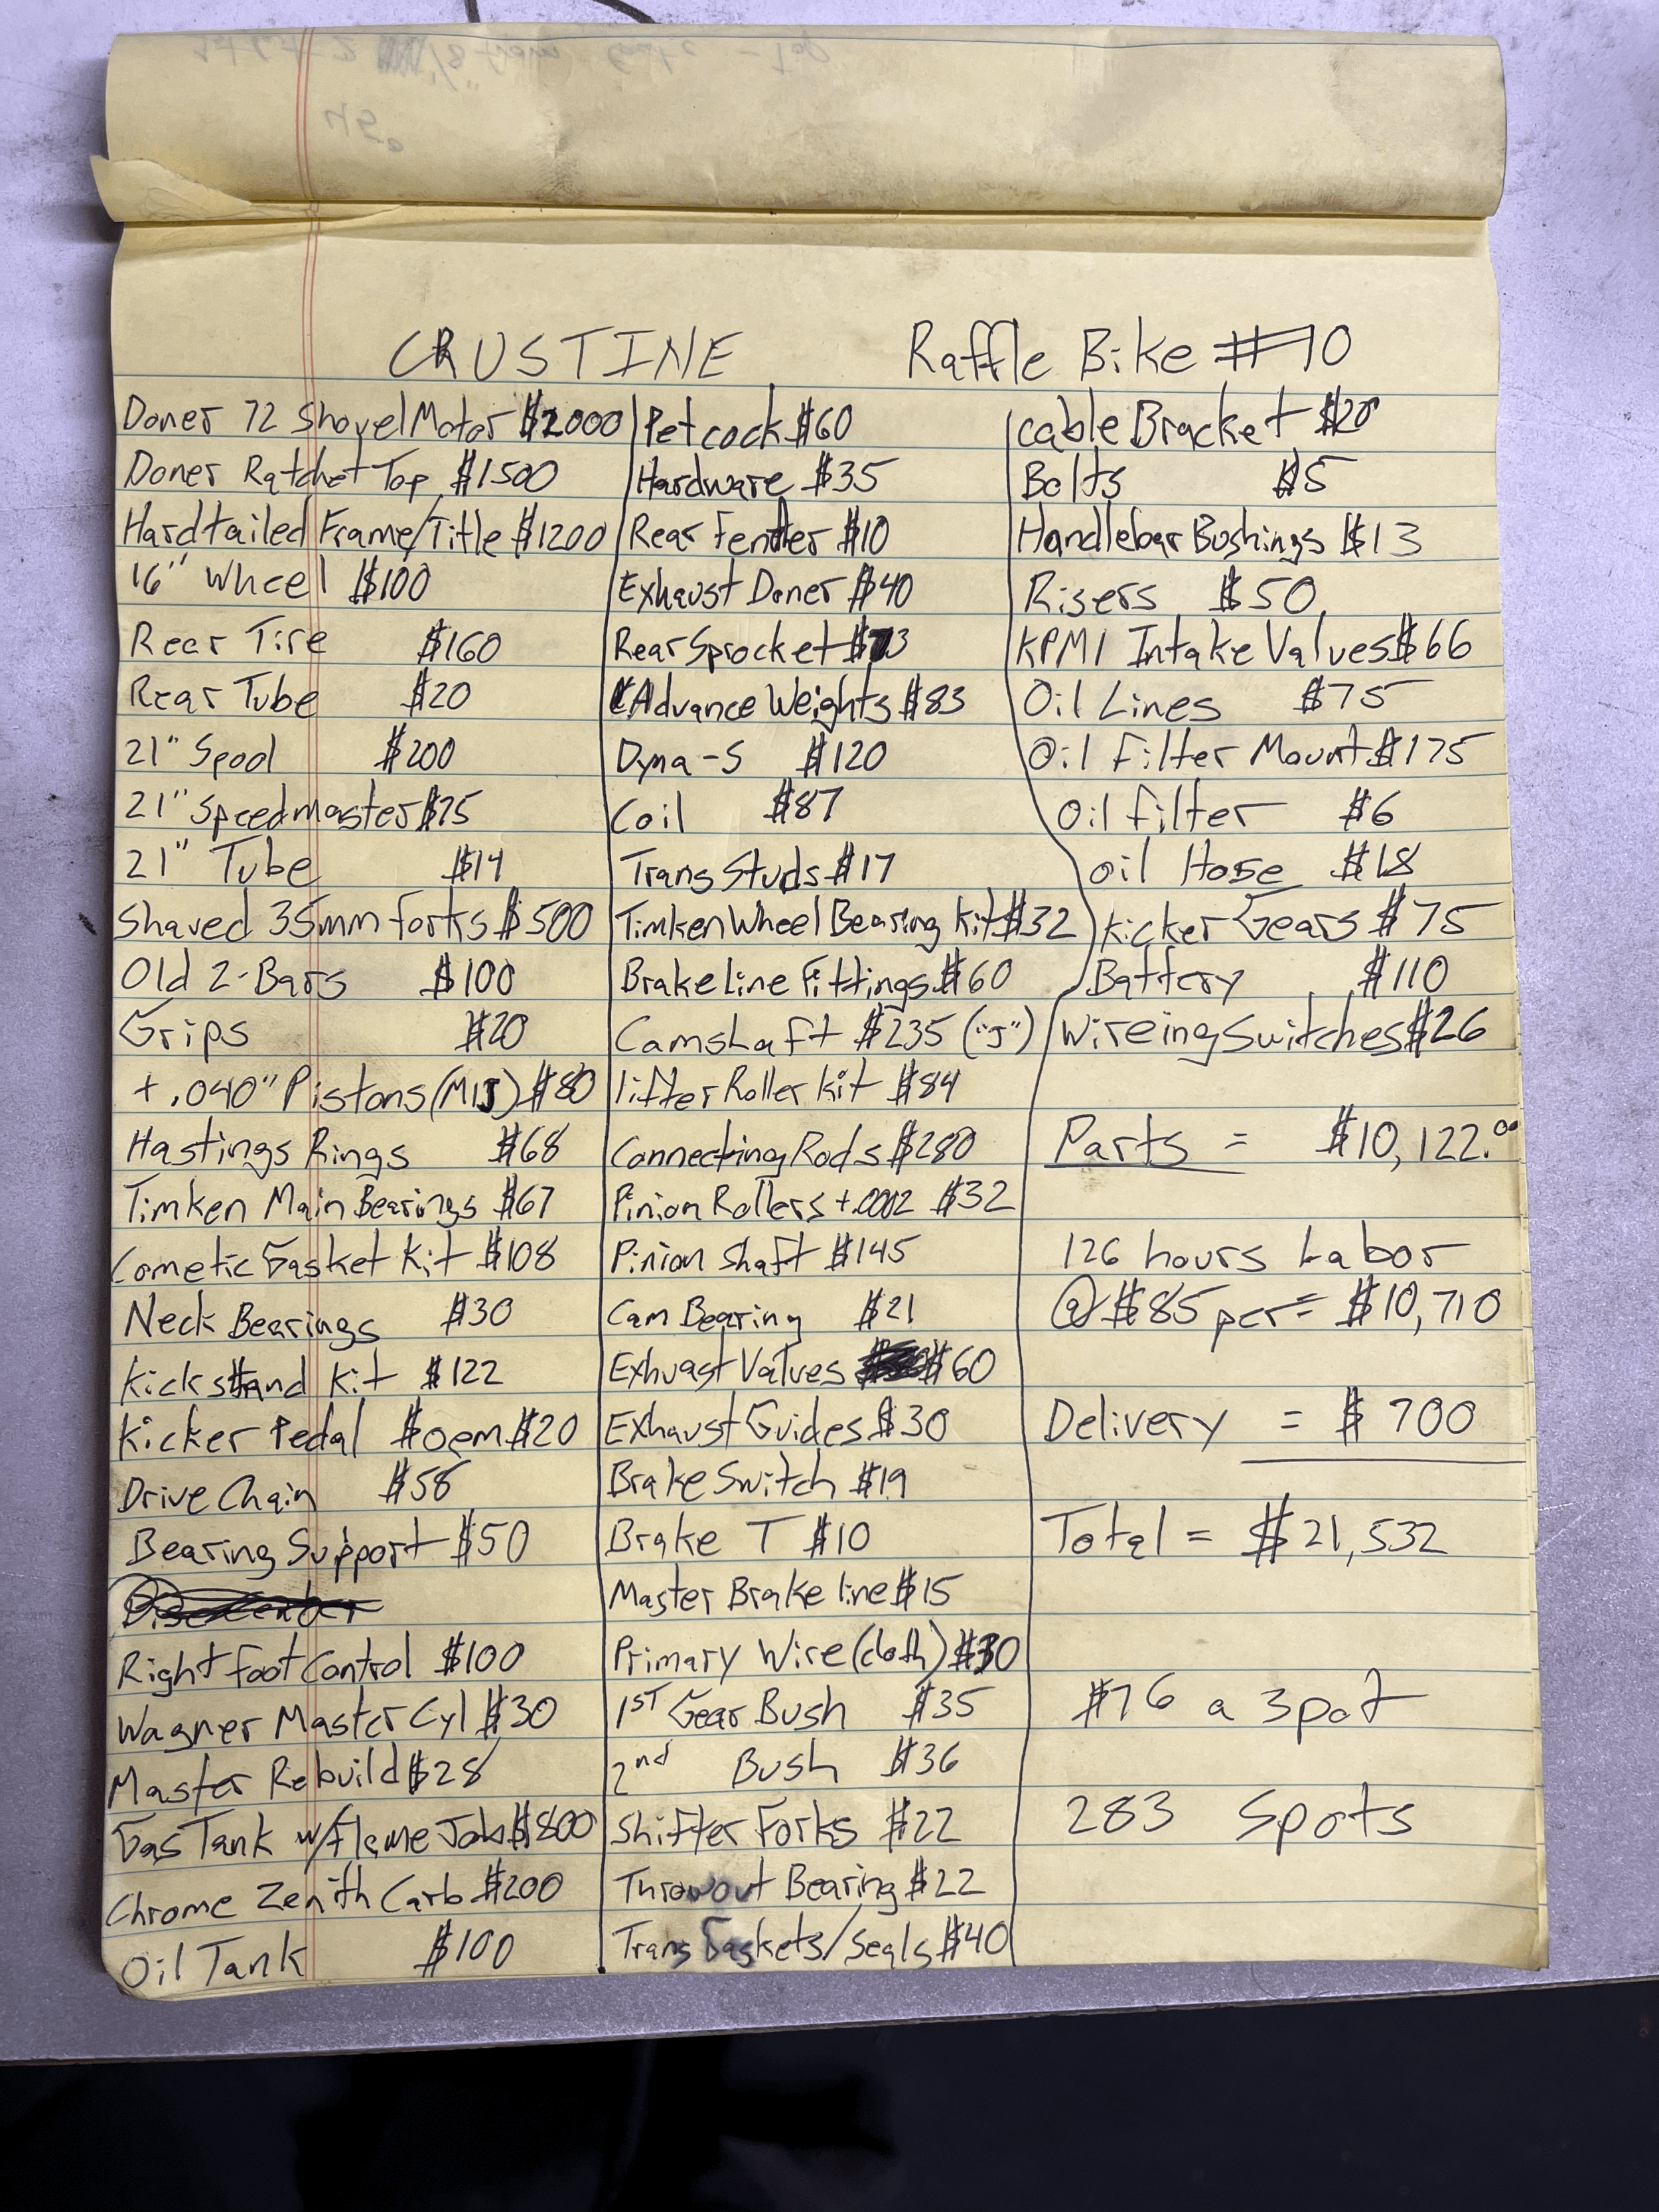 CRUSTINE Raffle Bike #10
Doner 72 Shovel Motor $2000
Doner Ratchet Top $1500
Hardtailed Frame/Title $1200
16" Wheel $100
Rear Tire $160
Rear Tube $20
21" Spool $200
21" Speedmaster $75
21" Tube $14
Shaved 35mm Forks $500
Old Z-Bars $100
Grips $20
+.040" Pistons (MIJ) $80
Hastings Rings $68
Timken Main Bearings $67
Cometic Gasket Kit $108
Neck Bearings $30
Kickstand Kit $122
Kicker Pedal $oem $20
Drive Chain $58
Bearing Support $50
Right Foot Control $100
Wagner Master Cyl $30
Master Rebuild $28
Gas Tank w/Flame Job $800
Chrome Zenith Carb $200
Oil Tank $100
Petcock $60
Hardware $35
Rear Fender $10
Exhaust Doner $40
Rear Sprocket $73
Advance Weights $83
Dyna-S $120
Coil $87
Trans Studs $17
Timken Wheel Bearing Kit $32
Brake Line Fittings $60
Camshaft $235 ("J")
lifter Roller Kit $84
Connecting Rods $280
Pinion Rollers +.0002 $32
Pinion Shaft $145
Cam Bearing $21
Exhuast Valves $60
Exhaust Guides $30
Brake Switch $19
Brake T $10
Master Brake line $15
Primary Wire (cloth) $30
1ST Gear Bush $35
2nd Bush $36
Shifter Forks $22
Throwout Bearing $22
Trans Gaskets/Seals $40
cable Bracket $20
Bolts $5
Handlebar Bushings $13
Risers $50
KPMI Intake Valves $66
Oil Lines $75
Oil Filter Mount $175
Oil filter $6
Oil Hose $18
Kicker Gears $75
Battery $110
Wireing Switches $26
Parts = $10,122.00
126 hours Labor
@ $85 per = $10,710
Delivery = $700
Total = $21,532
$76 a spot
283 Spots